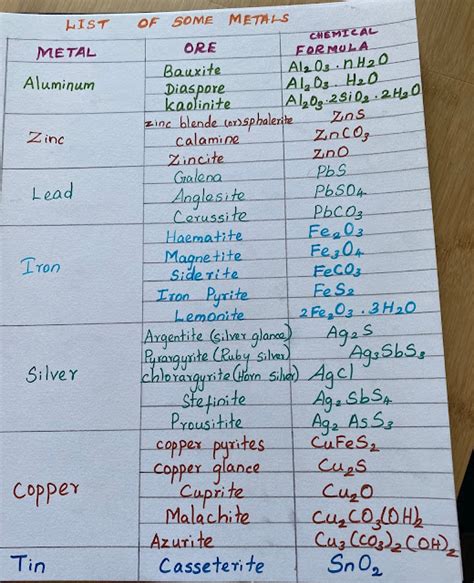 LIST OF SOME METALS
METAL ORE CHEMICAL FORMULA
Aluminum Bauxite Al₂O₃·nH₂O
Diaspore Al₂O₃·H₂O
kaolinite Al₂O₃·2SiO₂·2H₂O
Zinc zinc blende (or) sphalerite ZnS
calamine ZnCO₃
Zincite ZnO
Lead Galena PbS
Anglesite PbSO₄
Cerussite PbCO₃
Iron Haematite Fe₂O₃
Magnetite Fe₃O₄
Siderite FeCO₃
Iron Pyrite FeS₂
Lemonite 2Fe₂O₃·3H₂O
Silver Argentite (silver glance) Ag₂S
Pyrargyrite (Ruby silver) Ag₃SbS₃
chlorargyrite (Horn silver) AgCl
Stefinite Ag₂SbS₄
Prousitite Ag₂AsS₃
Copper copper pyrites CuFeS₂
copper glance Cu₂S
Cuprite Cu₂O
Malachite Cu₂CO₃(OH)₂
Azurite Cu₃(CO₃)₂(OH)₂
Tin Casseterite SnO₂